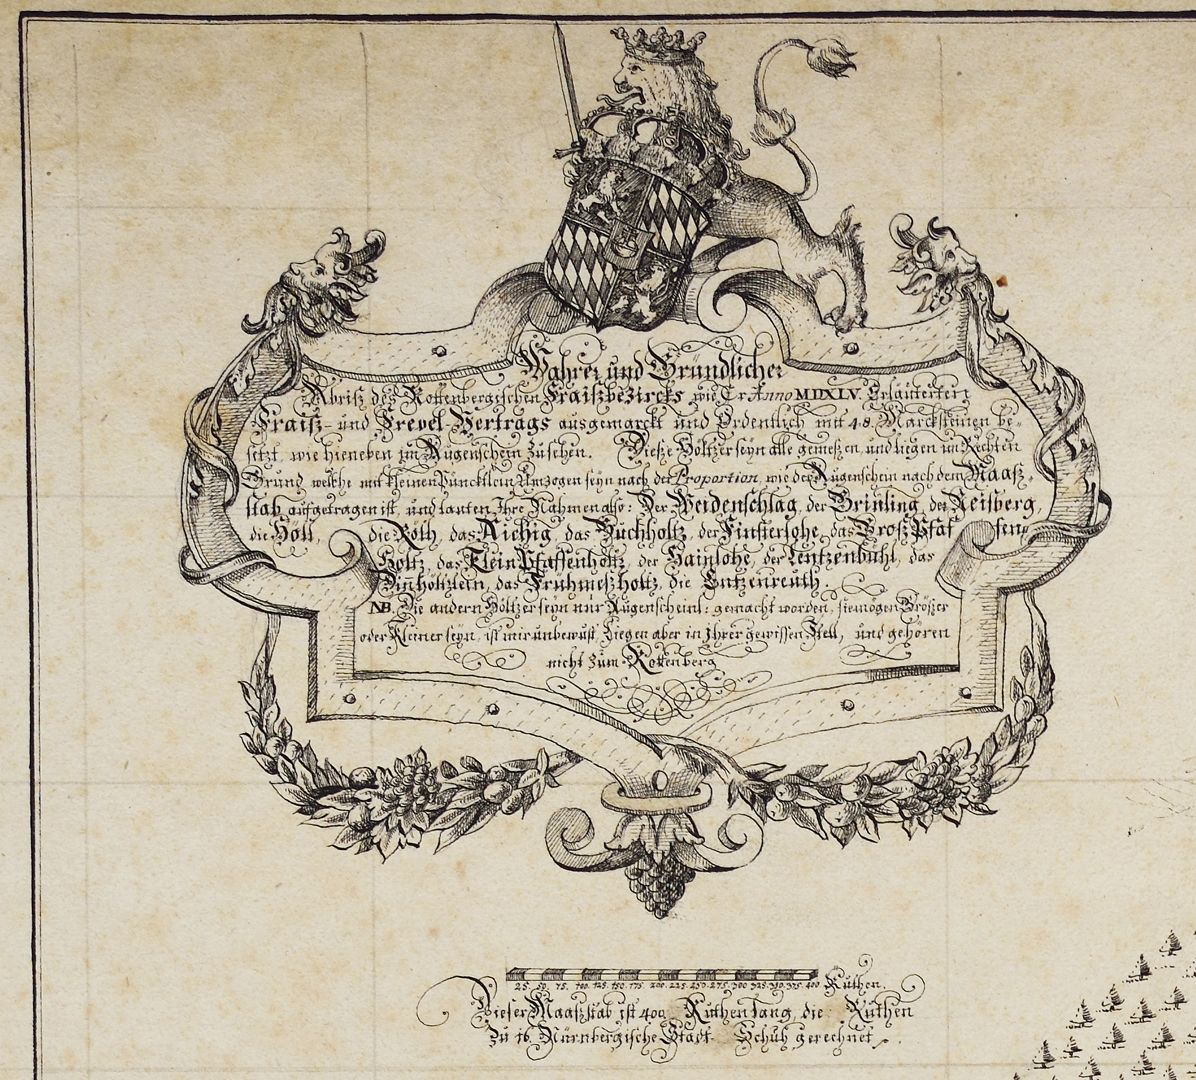 Wahrer und Gründlicher
Abriß des Rottenbergischen Fraißbezircks wie Er Anno MDXLV. Erläuterter
Fraiß- und Frevel-Vertrags ausgemarckt und Ordentlich mit 48. Marcksteinen be-
setzt, wie hieneben im Augenschein zu sehen. Dieße Höltzer seyn alle gemeßen, und liegen im Rechten
Grund, welche mit kleinen Püncktlein Umzogen seyn nach der Proportion, wie der Augenschein nach dem Maaß-
stab aufgetragen ist, und lauten Ihre Nahmen also: Der Weidenschlag, der Grünling, der Reisberg,
die Höll, die Röth, das Aichig, das Buchholtz, der Finsterlohe, das Groß Pfaf fen-
Holtz, das Klein Pfaffenholtz, der Hainlohe, der Lentzenbühl, das
Dinhöltzlein, das Frühmeßholtz, die Entzenreuth.
NB. Die andern Höltzer seyn nur Augenscheinl: gemacht worden, sie mögen Größer
oder Kleiner seyn, ist mir unbewust, Liegen aber in Ihrer gewissen Stell, und gehören
nicht zum Rottenberg
25. 50. 75. 100. 125. 150. 175. 200. 225. 250. 275. 300. 325. 350. 375. 400 Ruthen.
Dieser Maaßstab ist 400 Ruthen lang, die Ruthen
zu 16. Nürnbergische Stadt Schuh gerechnet.